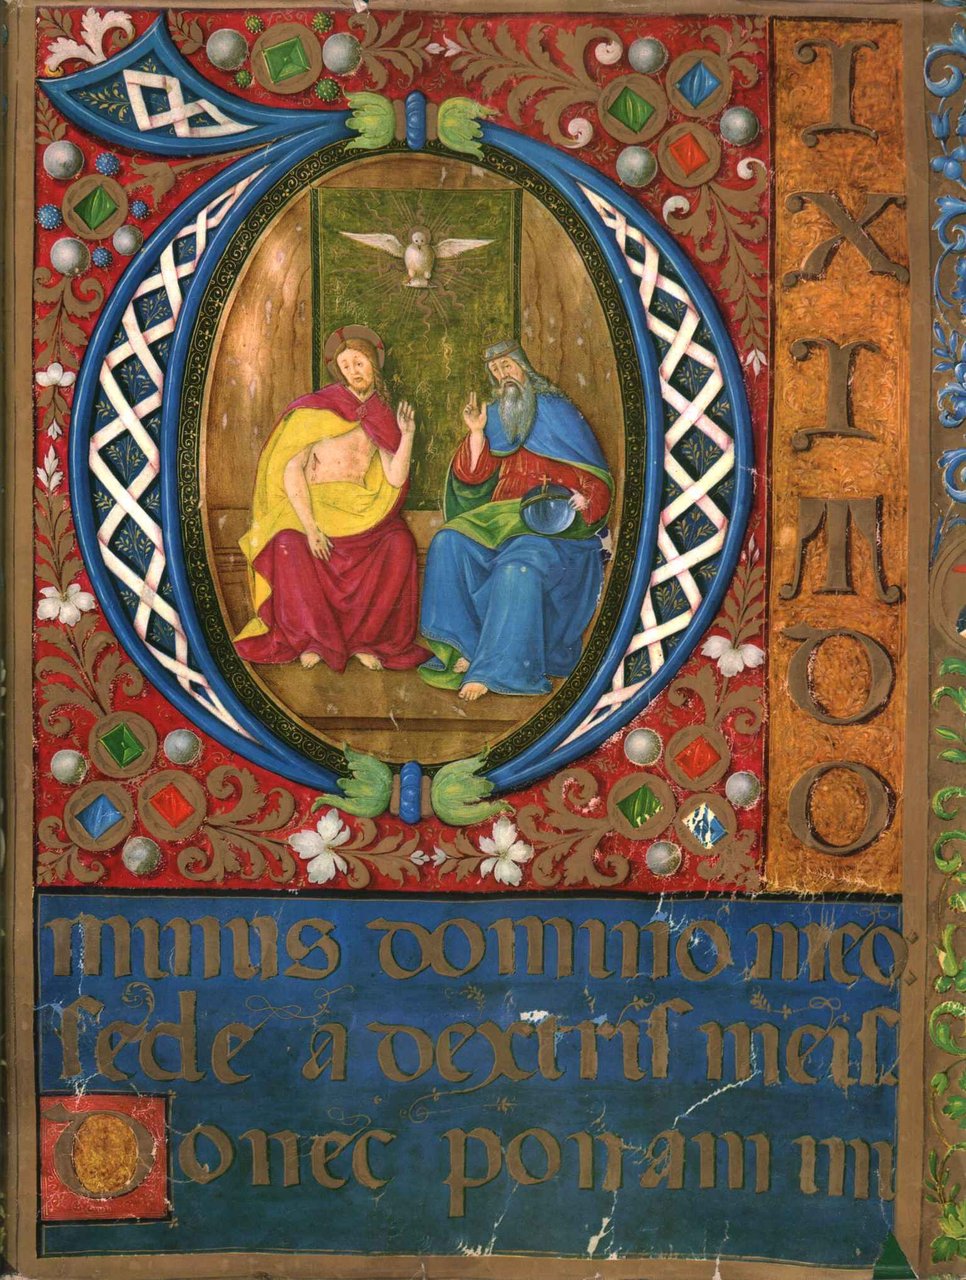 DIXITDO
minus domino meo:
sede a dextris meis
Donec ponam ini